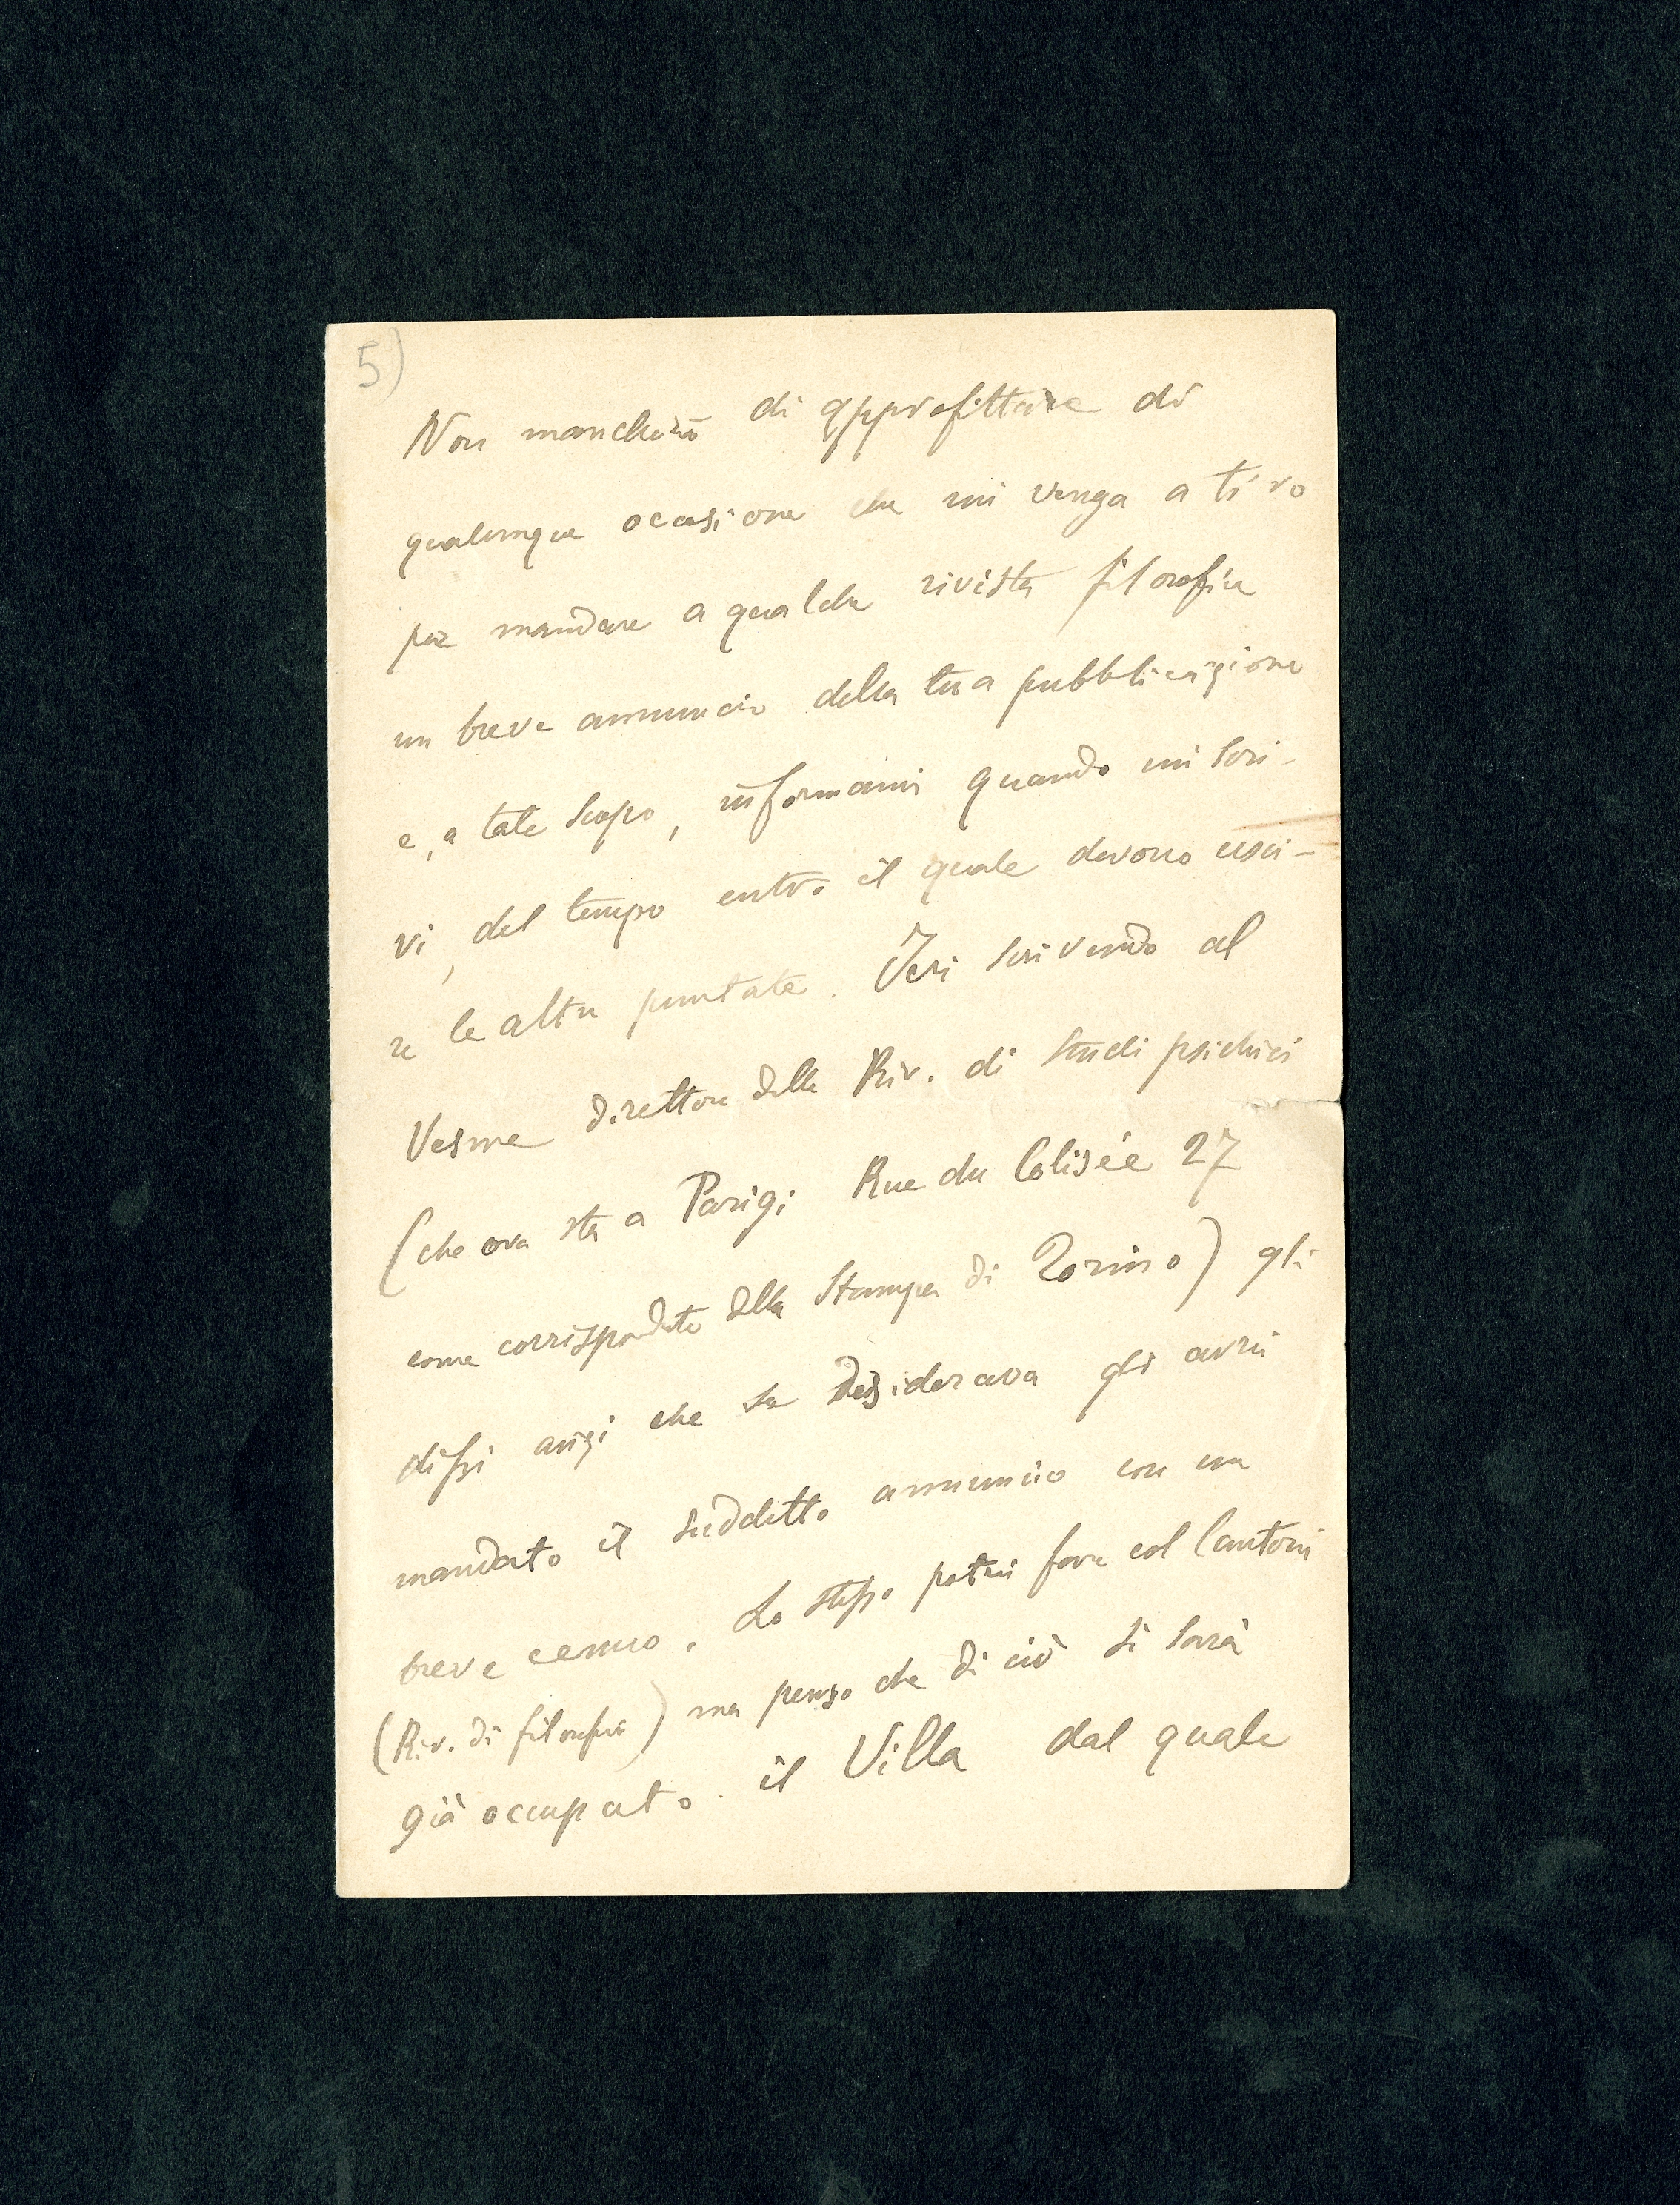 5)
Non mancherò di approfittare di
qualunque occasione che mi venga a tiro
per mandare a qualche rivista filosofica
un breve annuncio della tua pubblicazione
e, a tale scopo, informami quando mi scri-
vi, del tempo entro il quale devono usci-
re le altre puntate. Ieri scrivendo al
Vesme direttore della Riv. di studi psichici
(che ora sta a Parigi Rue du Colisée 27
come corrispondente della Stampa di Torino) gli
dissi anzi che se desiderava gli avrei
mandato il suddetto annuncio con un
breve cenno. Lo stesso potrei fare col Cantoni
(Riv. di filosofia) ma penso che di ciò si sarà
già occupato il Villa dal quale